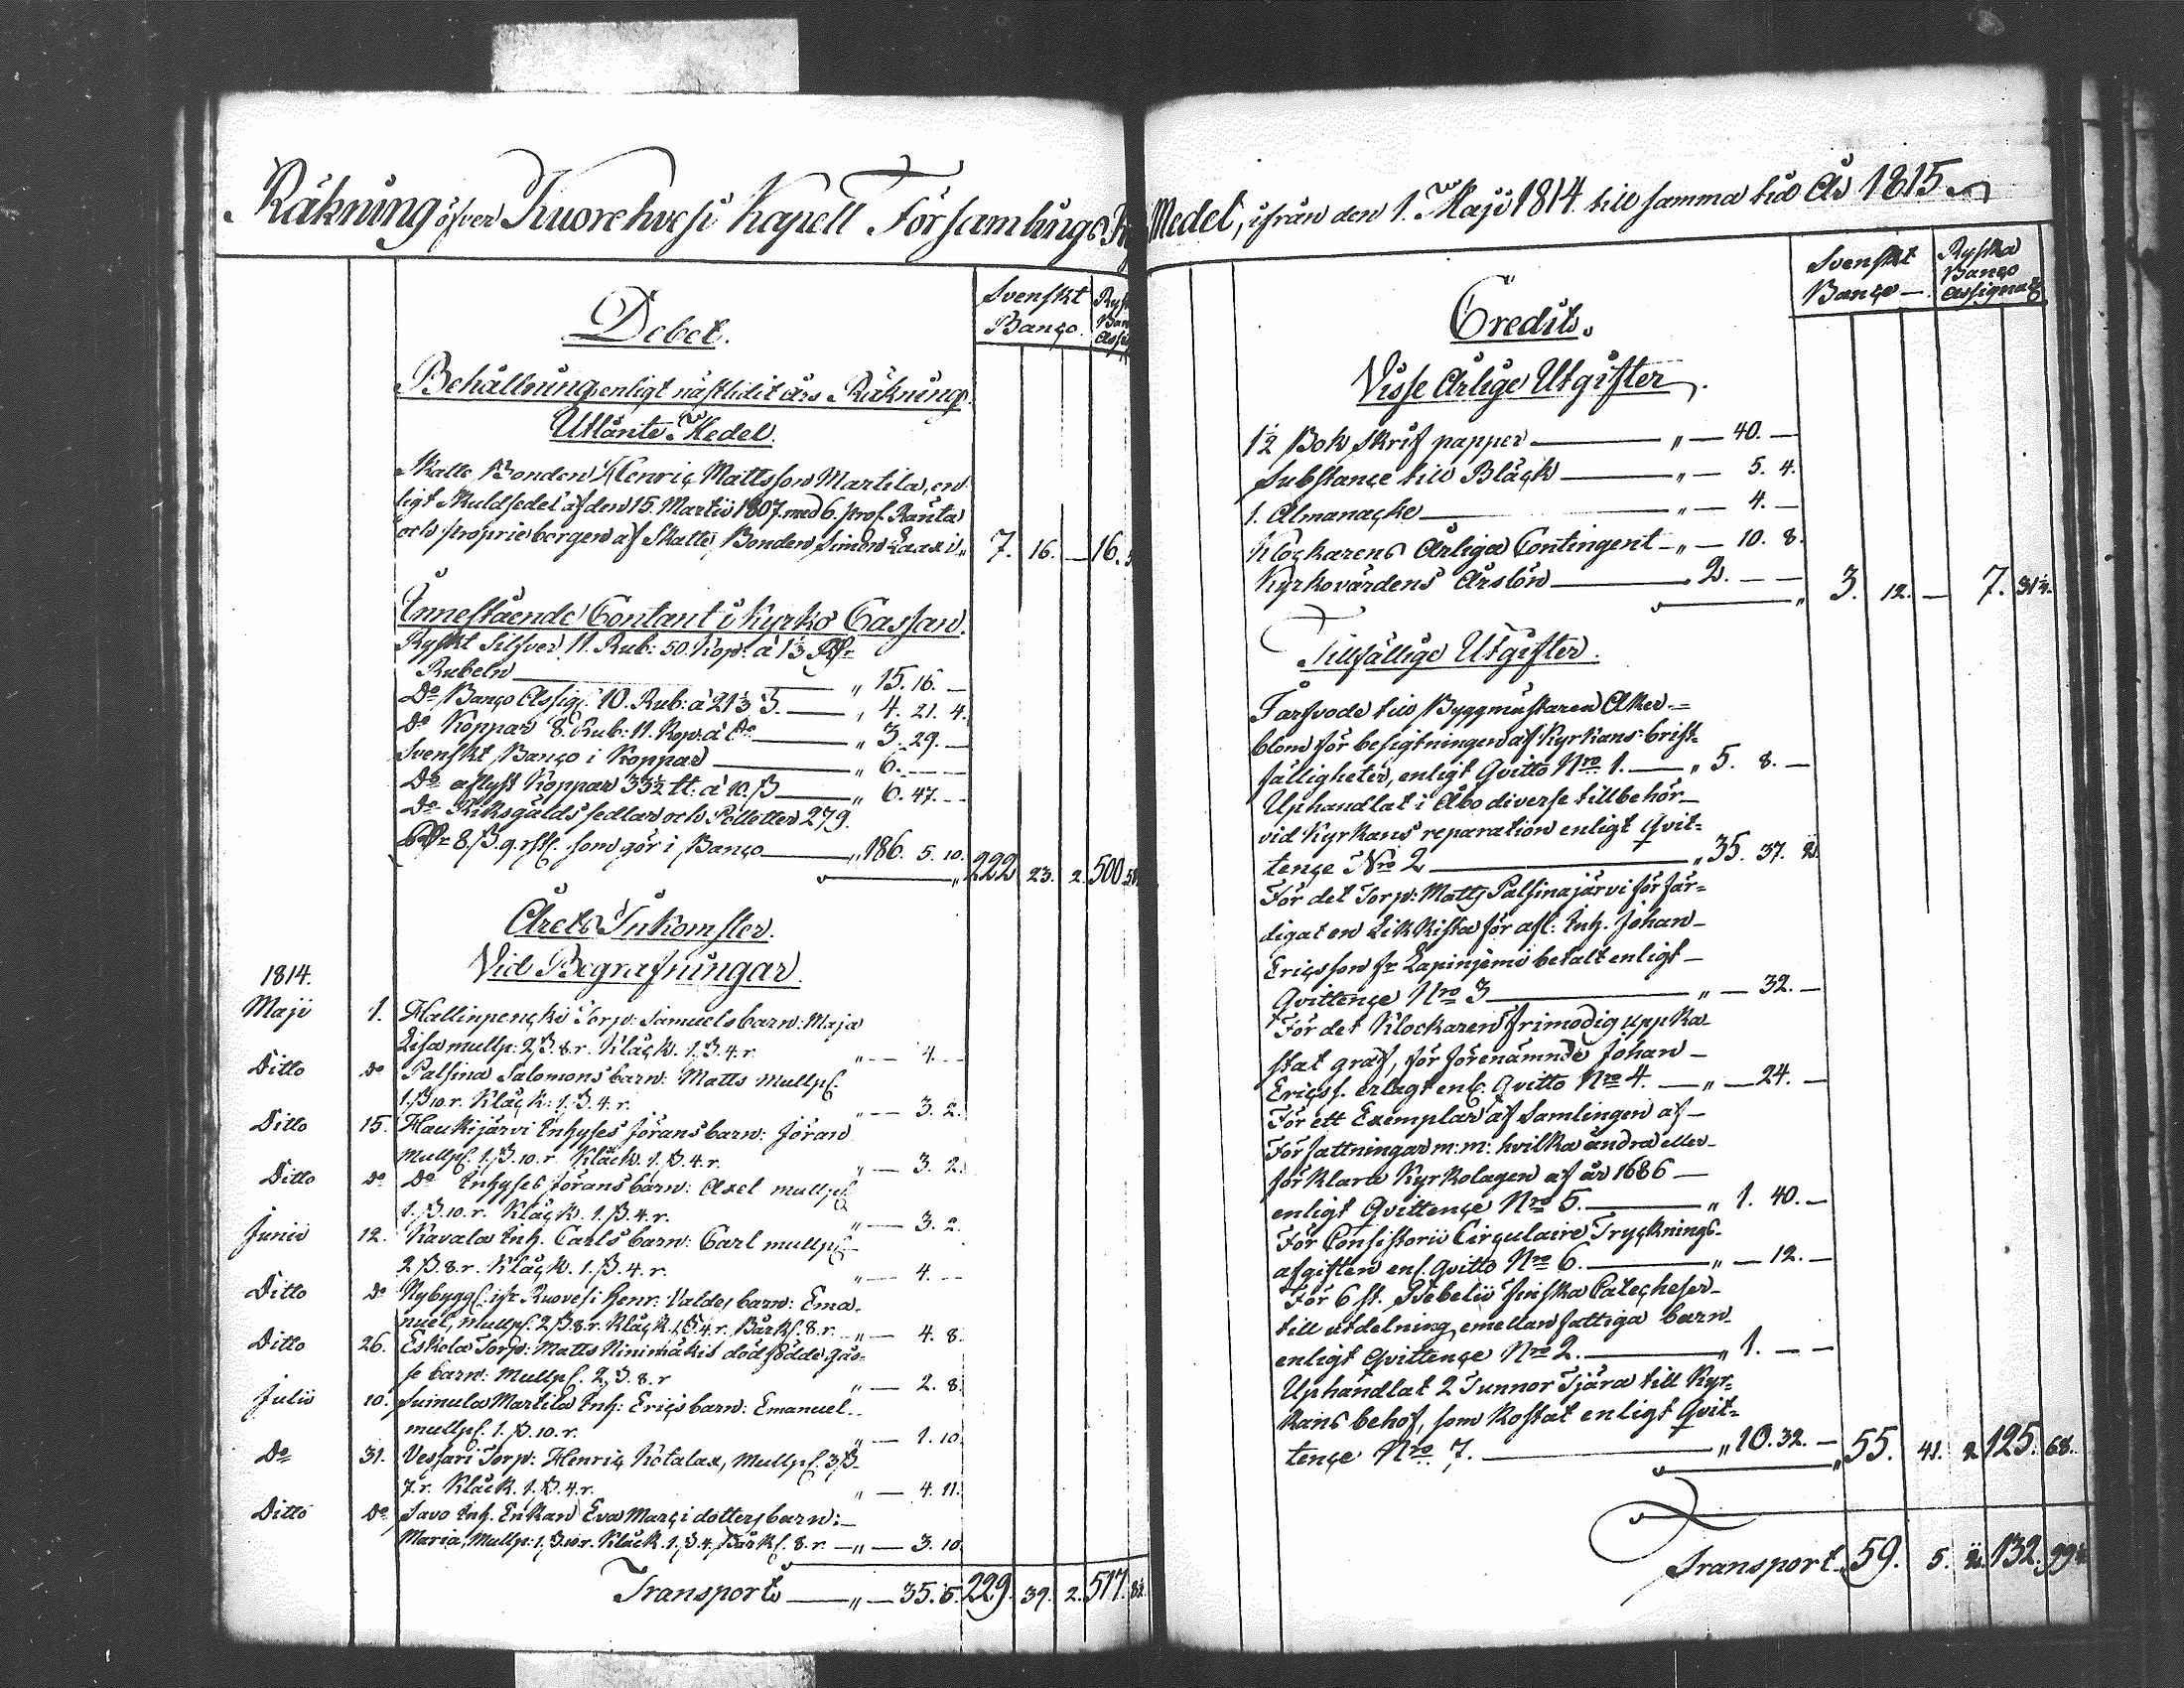 Räkning öfver Kuorehvesi Kapell Församlings
Debet.
Svenskt
Banco.
Behållning enligt nästlidit års Räkning.
Utlånte Medel.
Skatte Bonden Henric Mattsson Martila, en
ligt Skuldsedel af den 15. Martii 1807. med 6. proc. Ränta
och proprie borgen af Skatte Bonden Simon Laaxi „ 7. 16. — 16.
Innestående Contant i Kyrko Cassan.
Ryskt Silfver 11. Rub: 50. Kop: à 1⅓ Rdr
Rubeln — „ 15. 16. —
Do Banco Assign: 10. Rub: à 21⅓ ß. — „ 4. 21. 4.
Do Koppar 8. Rub: 11. Kop: à Do — „ 3. 29. —
Svenskt Banco i Koppar — „ 6. — —
Do aflyst Koppar 33½ tt. à 10. ß — „ 6. 47. —
Do Riksgälds sedlar och Polletter 279.
Rdr 8. ß. 9. rst. som gör i Banco — „ 186. 5. 10. 222 23. 2. 500
Årets Inkomster.
Vid Begrafningar.
1814.
Maji 1. Hallinpencki Torp: Samuels barn: Maja
Lisa mullp: 2 ß. 8. r. Kläck. 1. ß. 4. r. „ — 4. —
Ditto Do Palsina Salomons barn: Matts mullpf.
1. ß 10. r. Kläck: 1. ß. 4. r. „ — 3. 2.
Ditto 15. Haukijärvi Inhyses Jörans barn: Jöran
mullpf. 1. ß. 10. r. Kläck. 1. ß. 4. r. „ — 3. 2.
Ditto Do Do Inhyses Jörans barn: Axel mullpf
1. ß. 10. r. Kläck. 1. ß. 4. r. „ — 3. 2.
Junii 12. Kavala Inh. Carls barn: Carl mullpf
2 ß. 8. r. Kläck. 1. ß. 4. r. „ — 4. —
Ditto Do Nybygg. ifr Ruovesi Henr: Valdes barn: Ema-
nuel, mullpf. 2 ß 8. r. Kläck. 1 ß 4. r. Bårkl. 8. r. „ — 4. 8.
Ditto 26. Eskola Torp: Matts Ninimäkis dödfödde gås-
se barn: Mullpf. 2. ß. 8. r „ — 2. 8.
Julii 10. Suinula Martila Inh: Erics barn: Emanuel
mullpf. 1. ß. 10. r. „ — 1. 10.
Do 31. Vessari Torp: Henric Kotalax, Mullpf. 3 ß.
7. r. Kläck. 1. ß. 4. r. „ — 4. 11.
Ditto Do Savo Inh. Enkan Eva Marci dotters barn:
Maria, Mullp: 1. ß. 10. r. Kläck. 1. ß. 4. Bårkl. 8. r. — „ — 3. 10.
Transport — „ — 35. 5. 229. 39. 2. 517.
Medel, ifrån den 1. Maji 1814. till samma tid År 1815.
Credit.
Svenskt
Banco —
Ryska
Banco
Assignat
Visse Årlige Utgifter.
1½ Bok skrif papper — „ — 40. —
Substance till Bläck — „ — 5. 4.
1. Almanacke — „ — 4. —
Klockarens Årliga Contingent — „ — 10. 8.
Kyrkovärdens Årslön — 2. — — „ 3. 12. — 7. 31¼.
Tillfällige Utgifter.
Tarfvode till Byggmästaren Åker-
blom för besigtningen af Kyrkans brist-
fälligheter, enligt Qvitto Nro 1. — „ 5. 8. —
Uphandlat i Åbo diverse tillbehör
vid Kyrkans reparation enligt Qvit-
tence Nro 2 — „ 35. 37. 2.
För det Torp: Matts Palsinajärvi förfär-
digat en Likkista för afl: Inh. Johan
Ericsson fr Lapinjemi betalt enligt
Qvittence Nro 3 — „ — 32. —
För det Klockaren Frimodig uppka
stat graf, för förenämnde Johan
Ericss. erlagt enl. Qvitto Nro 4. — „ — 24. —
För ett Exemplar af Samlingen af
Författningar m: m: hvilka ändra eller
förklara Kyrkolagen af år 1686
enligt Qvittence Nro 5. — „ 1. 40. —
För Consistorii Circulaire Trycknings
afgiften enl. Qvitto Nro 6. — „ — 12. —
För 6 st. Svebelii finska Catecheser
till utdelning emellan fattiga barn
enligt Qvittence Nro 2. — „ 1. — —
Uphandlat 2 Tunnor Tjära till Kyr-
kans behof, som kostat enligt Qvit-
tence Nro 7. — „ 10. 32. — 55. 41. 2 125. 68.
Transport. 59. 5. 2. 132. 99¼